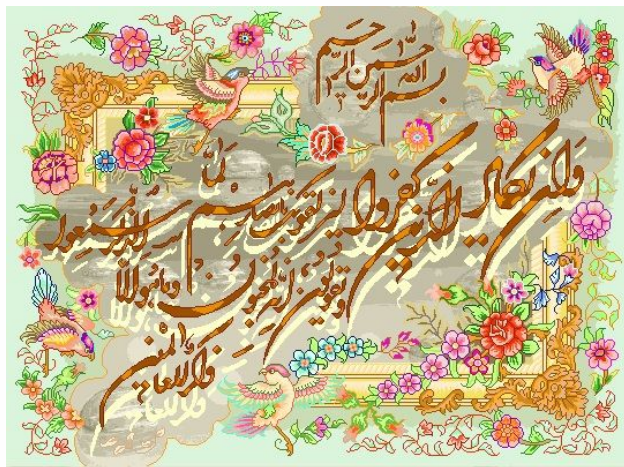 بسم الله الرحمن الرحیم
وان یکاد الذین کفروا لیزلقونک بابصارهم لما سمعوا الذکر
و یقولون انه لمجنون و ما هو الا
ذکر للعالمین